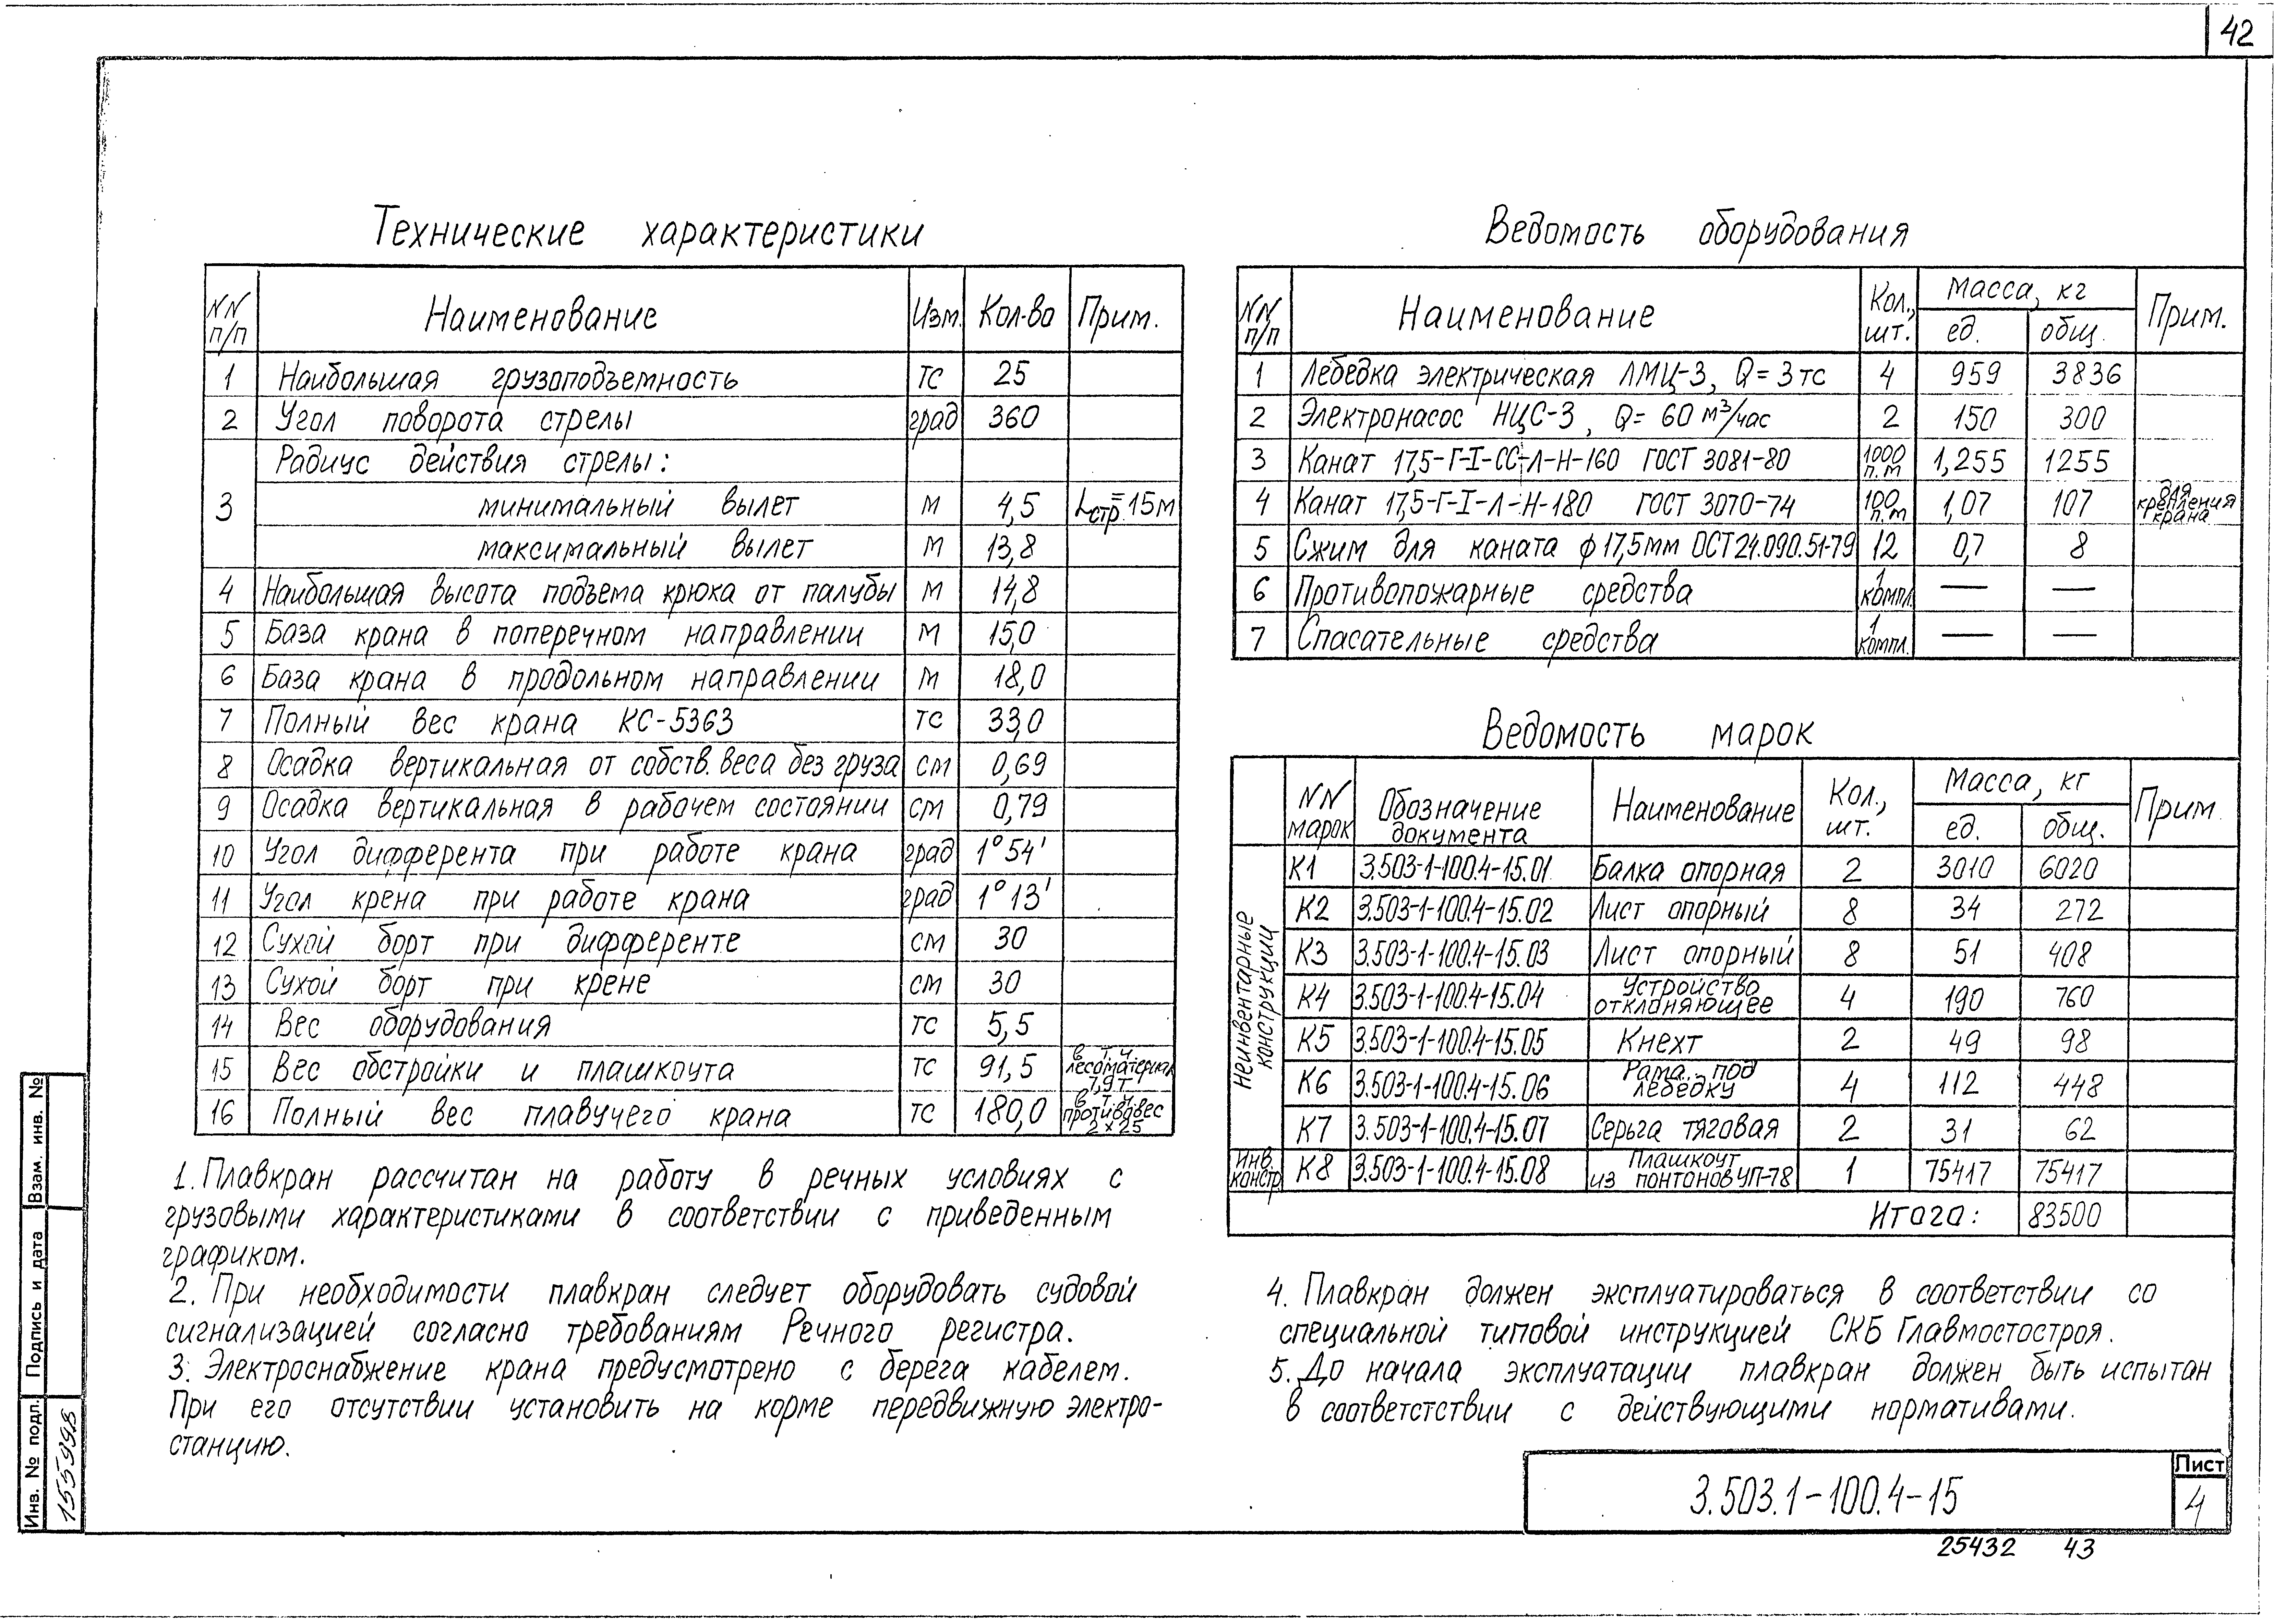 42
Технические характеристики
NN п/п Наименование Изм. Кол-во Прим.
1 Наибольшая грузоподъемность тс 25
2 Угол поворота стрелы град 360
3 Радиус действия стрелы:
минимальный вылет м 4,5 Lстр.=15м
максимальный вылет м 13,8
4 Наибольшая высота подъема крюка от палубы м 14,8
5 База крана в поперечном направлении м 15,0
6 База крана в продольном направлении м 18,0
7 Полный вес крана КС-5363 тс 33,0
8 Осадка вертикальная от собств. веса без груза см 0,69
9 Осадка вертикальная в рабочем состоянии см 0,79
10 Угол дифферента при работе крана град 1°54'
11 Угол крена при работе крана град 1°13'
12 Сухой борт при дифференте см 30
13 Сухой борт при крене см 30
14 Вес оборудования тс 5,5
15 Вес обстройки и плашкоута тс 91,5 в т.ч. лесоматериал 7,9т
16 Полный вес плавучего крана тс 180,0 в т.ч. противовес 2×25
1. Плавкран рассчитан на работу в речных условиях с
грузовыми характеристиками в соответствии с приведенным
графиком.
2. При необходимости плавкран следует оборудовать судовой
сигнализацией согласно требованиям Речного регистра.
3. Электроснабжение крана предусмотрено с берега кабелем.
При его отсутствии установить на корме передвижную электро-
станцию.
Ведомость оборудования
NN п/п Наименование Кол., шт. Масса, кг ед. общ. Прим.
1 Лебедка электрическая ЛМЦ-3, Q=3тс 4 959 3836
2 Электронасос НЦС-3, Q=60 м³/час 2 150 300
3 Канат 17,5-Г-I-СС-Л-Н-160 ГОСТ 3081-80 1000 п.м 1,255 1255
4 Канат 17,5-Г-I-Л-Н-180 ГОСТ 3070-74 100 п.м 1,07 107 для крепления крана
5 Сжим для каната ф17,5мм ОСТ24.090.51-79 12 0,7 8
6 Противопожарные средства 1 компл. — —
7 Спасательные средства 1 компл. — —
Ведомость марок
NN марок Обозначение документа Наименование Кол., шт. Масса, кг ед. общ. Прим.
Неинвентарные конструкции
К1 3.503-1-100.4-15.01 Балка опорная 2 3010 6020
К2 3.503-1-100.4-15.02 Лист опорный 8 34 272
К3 3.503-1-100.4-15.03 Лист опорный 8 51 408
К4 3.503-1-100.4-15.04 Устройство отклоняющее 4 190 760
К5 3.503-1-100.4-15.05 Кнехт 2 49 98
К6 3.503-1-100.4-15.06 Рама под лебедку 4 112 448
К7 3.503-1-100.4-15.07 Серьга тяговая 2 31 62
Инв. констр. К8 3.503-1-100.4-15.08 Плашкоут из понтонов УП-78 1 75417 75417
Итого: 83500
4. Плавкран должен эксплуатироваться в соответствии со
специальной типовой инструкцией СКБ Главмостостроя.
5. До начала эксплуатации плавкран должен быть испытан
в соответстствии с действующими нормативами.
Взам. инв. №
Подпись и дата
Инв. № подл.
155998
3.503.1-100.4-15
Лист
4
25432 43